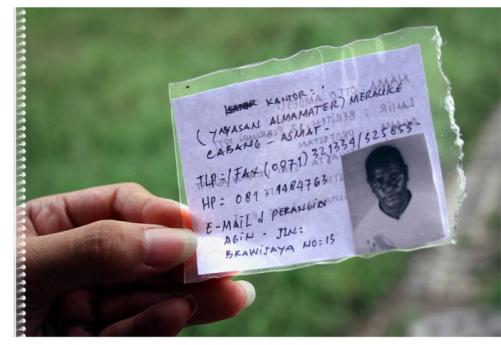 KANTOR:
(YAYASAN ALMAMATER) MERAUKE
CABANG - ASMAT-
TLP:/FAX (0971) 321334/325855
HP= 081
E-MAIL d PERANGIN
AGIN - JLN:
BRAWIJAYA NO: 15